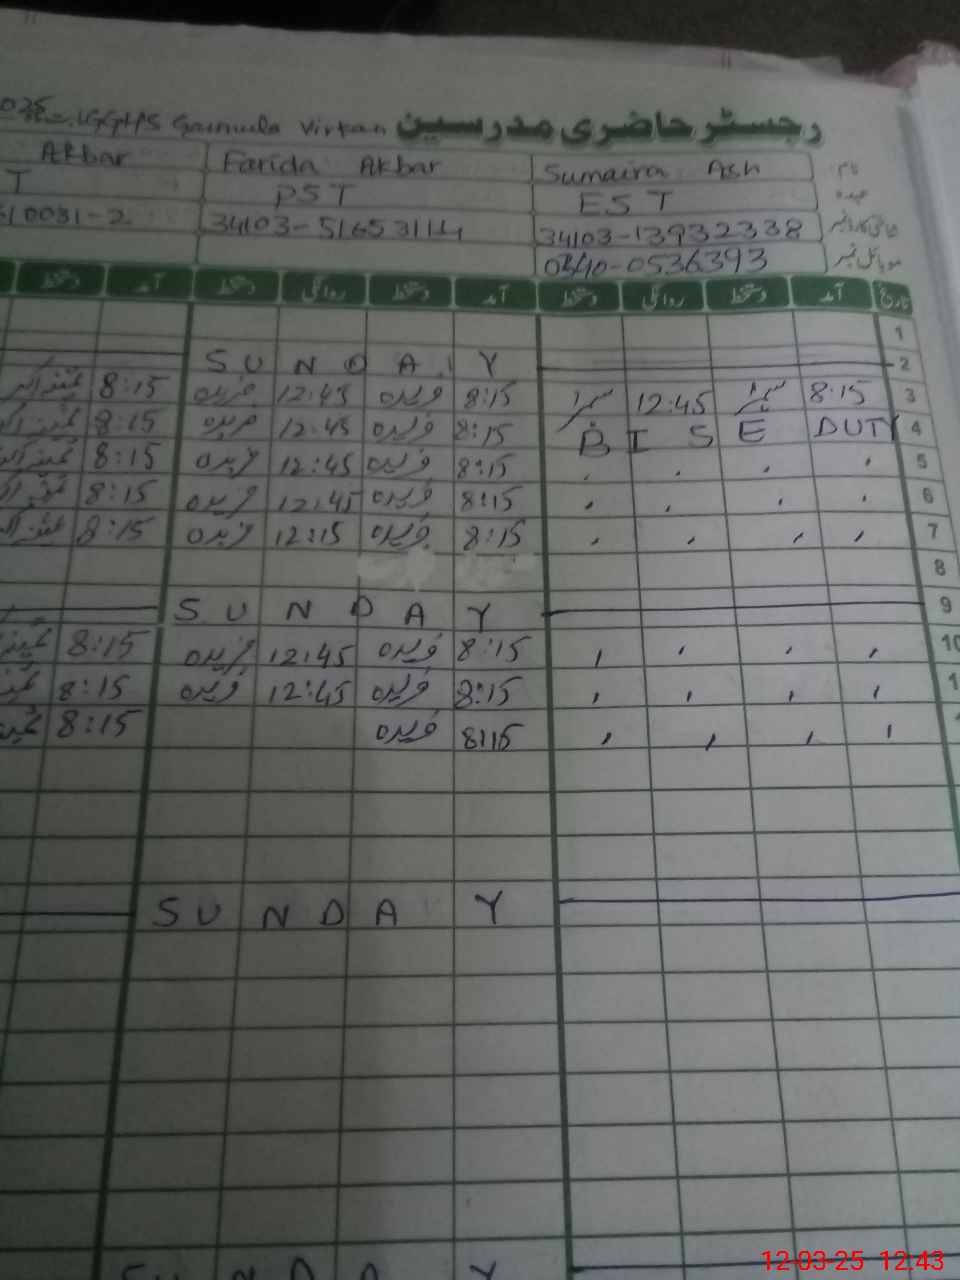 رجسٹر حاضری مدرسین GGHS Garmula Virkan 025
نام Sumaira Ash Farida Akbar Akbar
عہدہ EST PST T
شناختی کارڈ نمبر 34103-13932338 34103-5165311 10031-2
موبائل نمبر 0340-0536393
تاریخ آمد دستخط روانگی دستخط آمد دستخط روانگی دستخط آمد دستخط
1
2 SUNDAY
3 8:15 12:45 8:15 فریدہ 12:45 فریدہ 8:15
4 BISE DUTY 8:15 فریدہ 12:45 فریدہ 8:15
5 , , , , 8:15 فریدہ 12:45 فریدہ 8:15
6 , , , , 8:15 فریدہ 12:45 فریدہ 8:15
7 , , , , 8:15 فریدہ 12:15 فریدہ 8:15
8
9 SUNDAY
10 , , , , 8:15 فریدہ 12:45 فریدہ 8:15
1 , , , , 8:15 فریدہ 12:45 فریدہ 8:15
, , , , 8:15 فریدہ 8:15
SUNDAY
SUNDAY
12-03-25 12:43